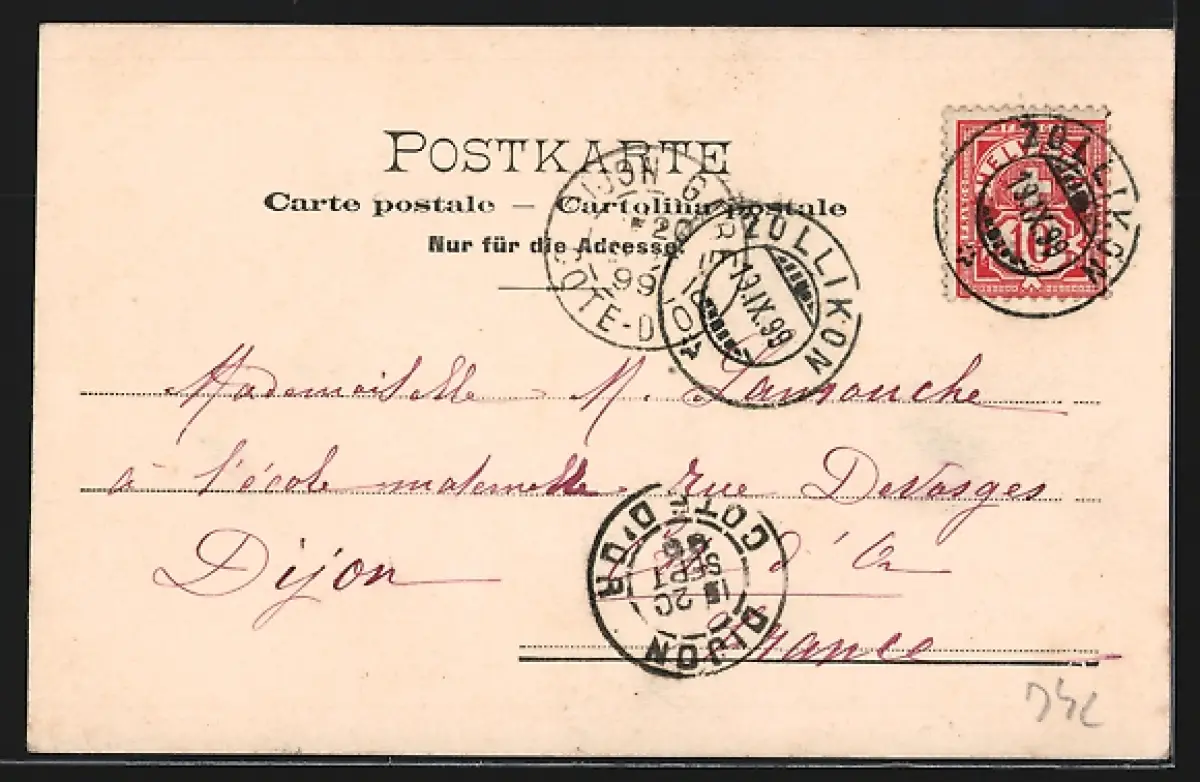 POSTKARTE
Carte postale – Cartolina postale
Nur für die Adresse.
HELVETIA
FRANCO
10
ZOLLIKON
19.IX.99
DIJON GARE
20
99
COTE-D'OR
ZOLLIKON
19.IX.99
Mademoiselle M. Lamouche
à l'école maternelle rue Devosges
Dijon Côte d'Or
France
DIJON
20
SEPT
99
COTE D'OR